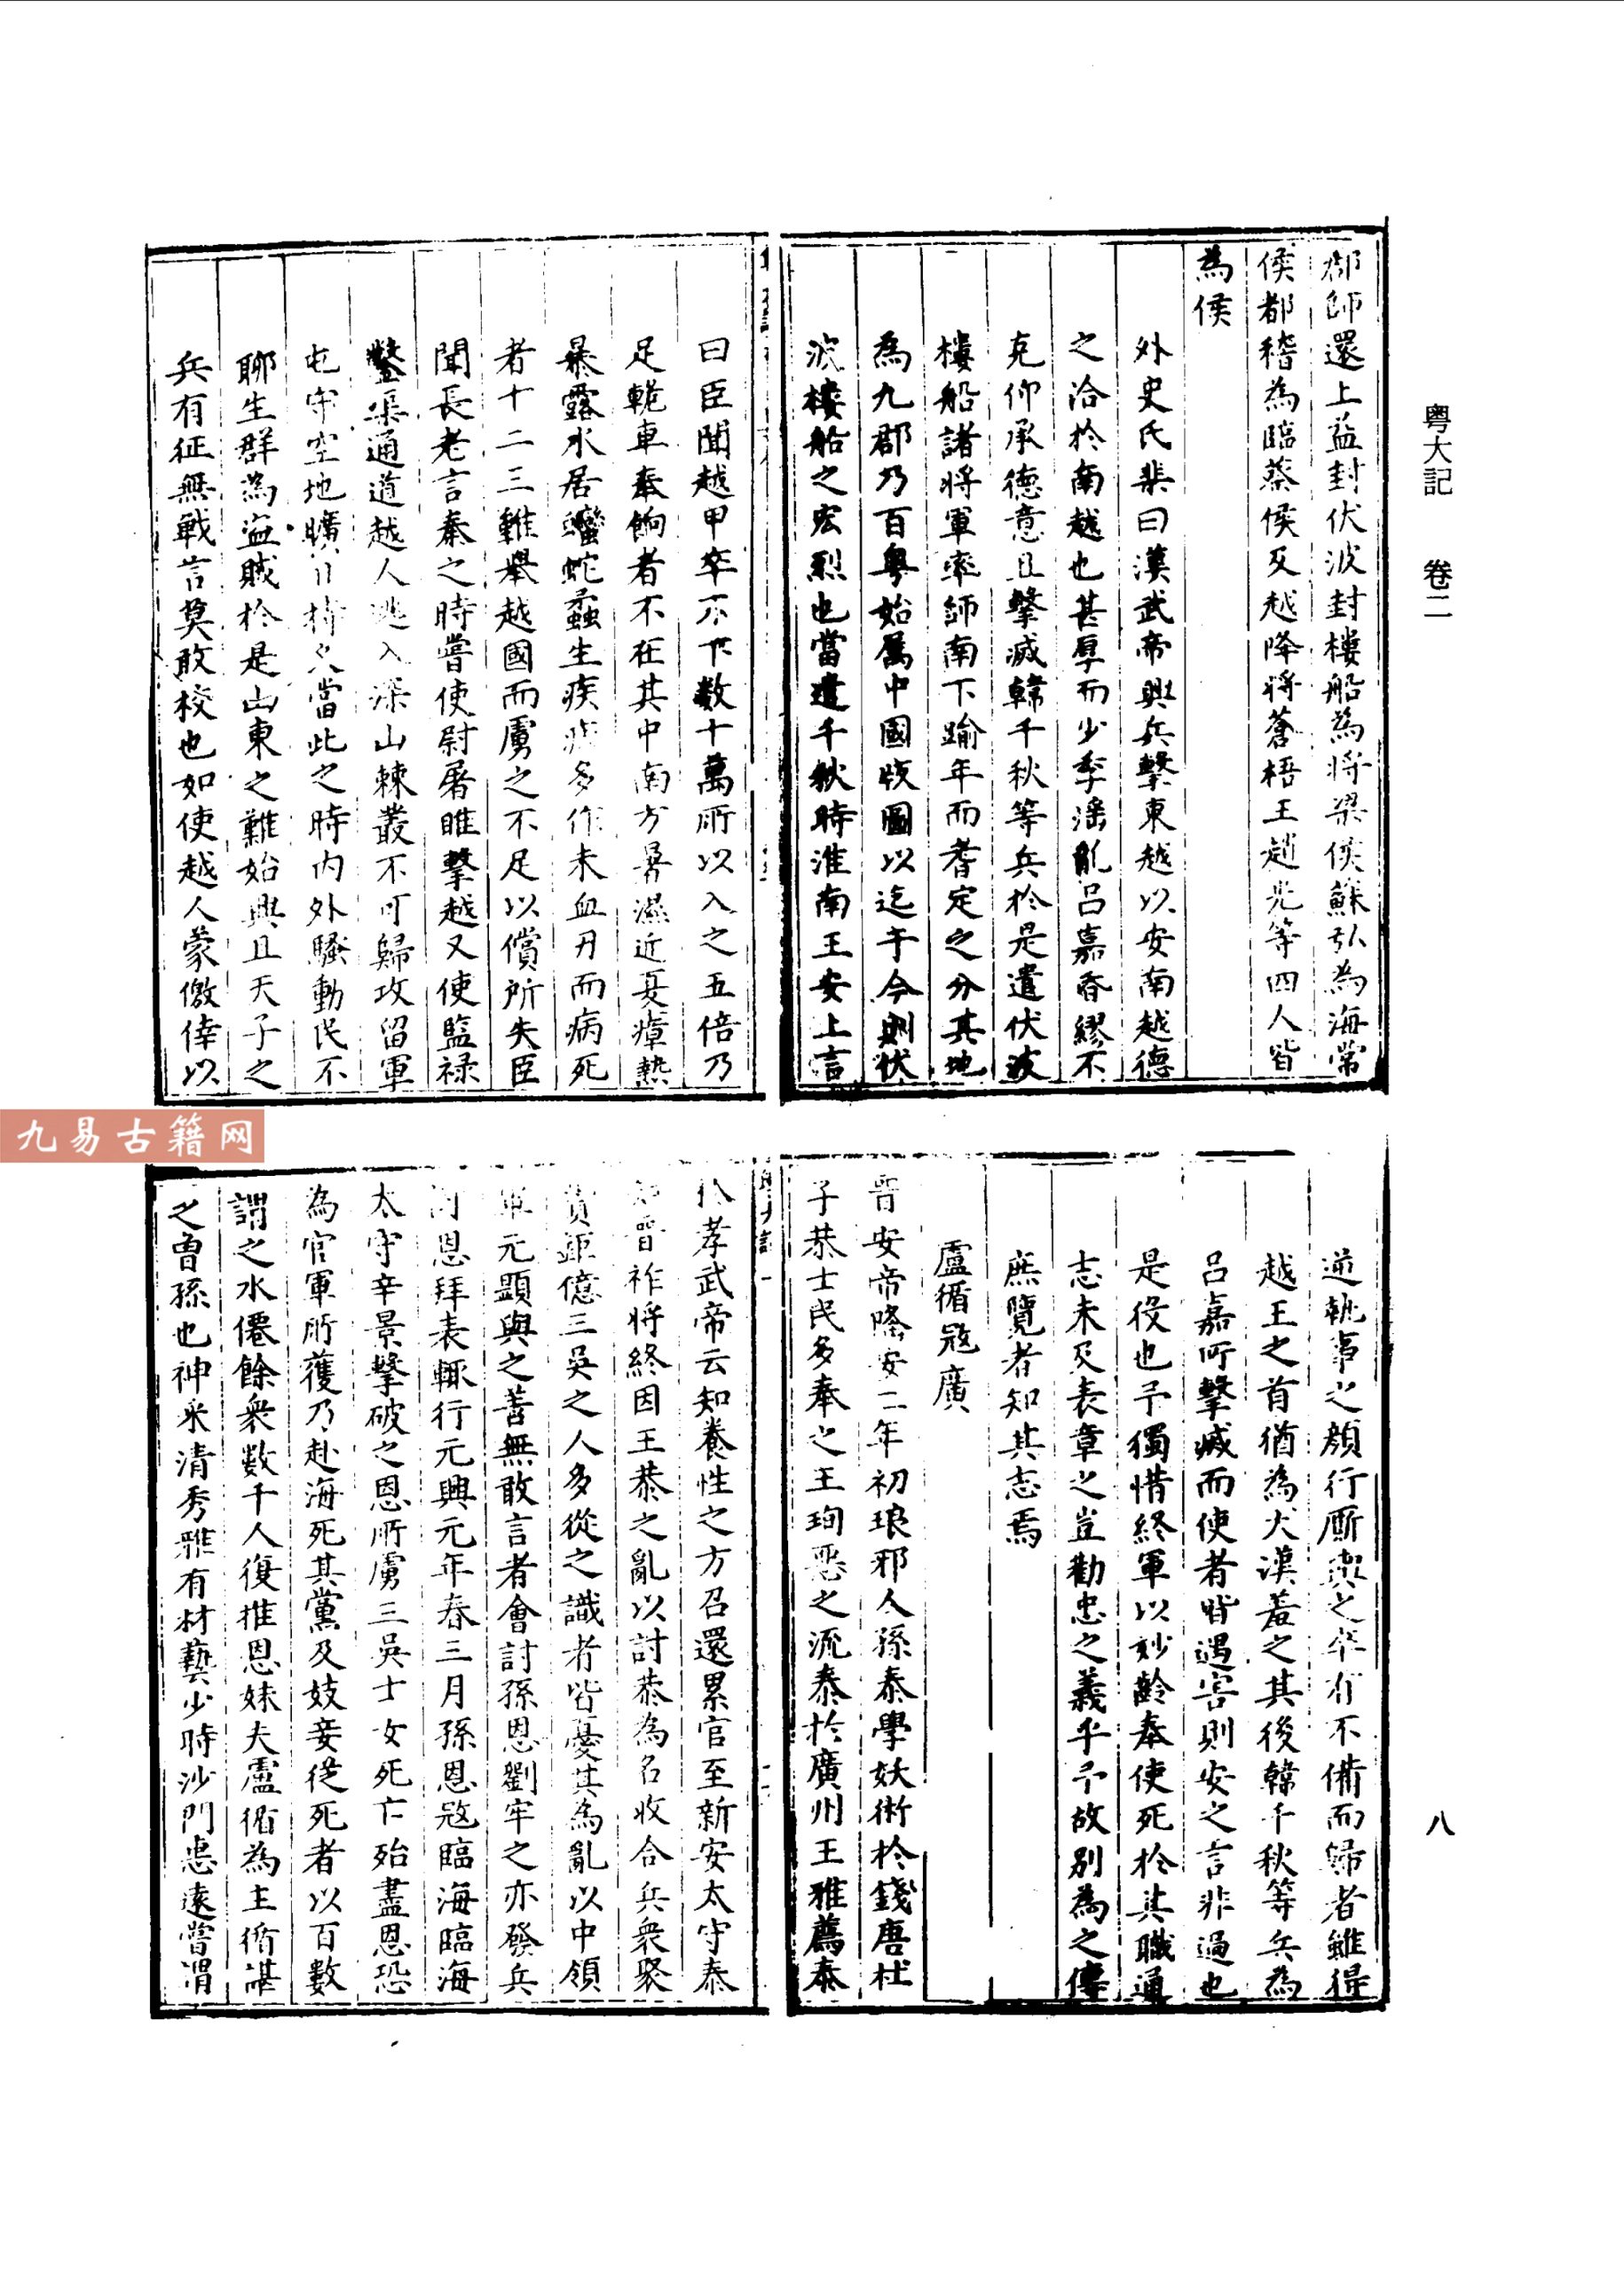 粤大記　卷二
郡師還上益封伏波封樓船為將梁侯蘇弘為海常
侯都稽為臨蔡侯及越降將蒼梧王趙光等四人皆
為侯
外史氏棐曰漢武帝興兵擊東越以安南越德
之洽於南越也甚厚而少季滛亂呂嘉昏繆不
克仰承德意且擊滅韓千秋等兵於是遣伏波
樓船諸將軍率師南下踰年而耆定之分其地
為九郡乃百粤始屬中國版圖以迄于今則伏
波樓船之宏烈也當遣千秋時淮南王安上言
曰臣聞越甲卒不下数十萬所以入之五倍乃
足輓車奉餉者不在其中南方暑濕近夏癉熱
暴露水居蝮蛇蠚生疾疢多作未血刃而病死
者十二三雖舉越國而虜之不足以償所失臣
聞長老言秦之時嘗使尉屠睢擊越又使監禄
鑿渠通道越人逃入深山棘叢不可歸攻留軍
屯守空地曠日持久當此之時内外騷動民不
聊生群為盜賊於是山東之難始興且天子之
兵有征無戰言莫敢校也如使越人蒙儌倖以
逆執事之顏行厮輿之卒有不備而歸者雖得
越王之首猶為大漢羞之其後韓千秋等兵為
呂嘉所擊滅而使者皆遇害則安之言非過也
是役也予獨惜終軍以妙齡奉使死於其職通
志未及表章之豈勸忠之義乎予故别為之傳
庶覽者知其志焉
盧循寇廣
晋安帝隆安二年初琅邪人孫泰學妖術於錢唐杜
子恭士民多奉之王珣惡之流泰於廣州王雅薦泰
於孝武帝云知養性之方召還累官至新安太守泰
知晋祚將終因王恭之亂以討恭為名收合兵衆聚
貨鉅億三吳之人多從之識者皆憂其為亂以中領
軍元顯與之善無敢言者會討孫恩劉牢之亦發兵
討恩拜表輒行元興元年春三月孫恩寇臨海臨海
太守辛景擊破之恩所虜三吳士女死亡殆盡恩恐
為官軍所獲乃赴海死其黨及妓妾從死者以百數
謂之水僊餘衆數千人復推恩妹夫盧循為主循諶
之曾孫也神采清秀雅有材藝少時沙門惠遠嘗謂
八
九易古籍网